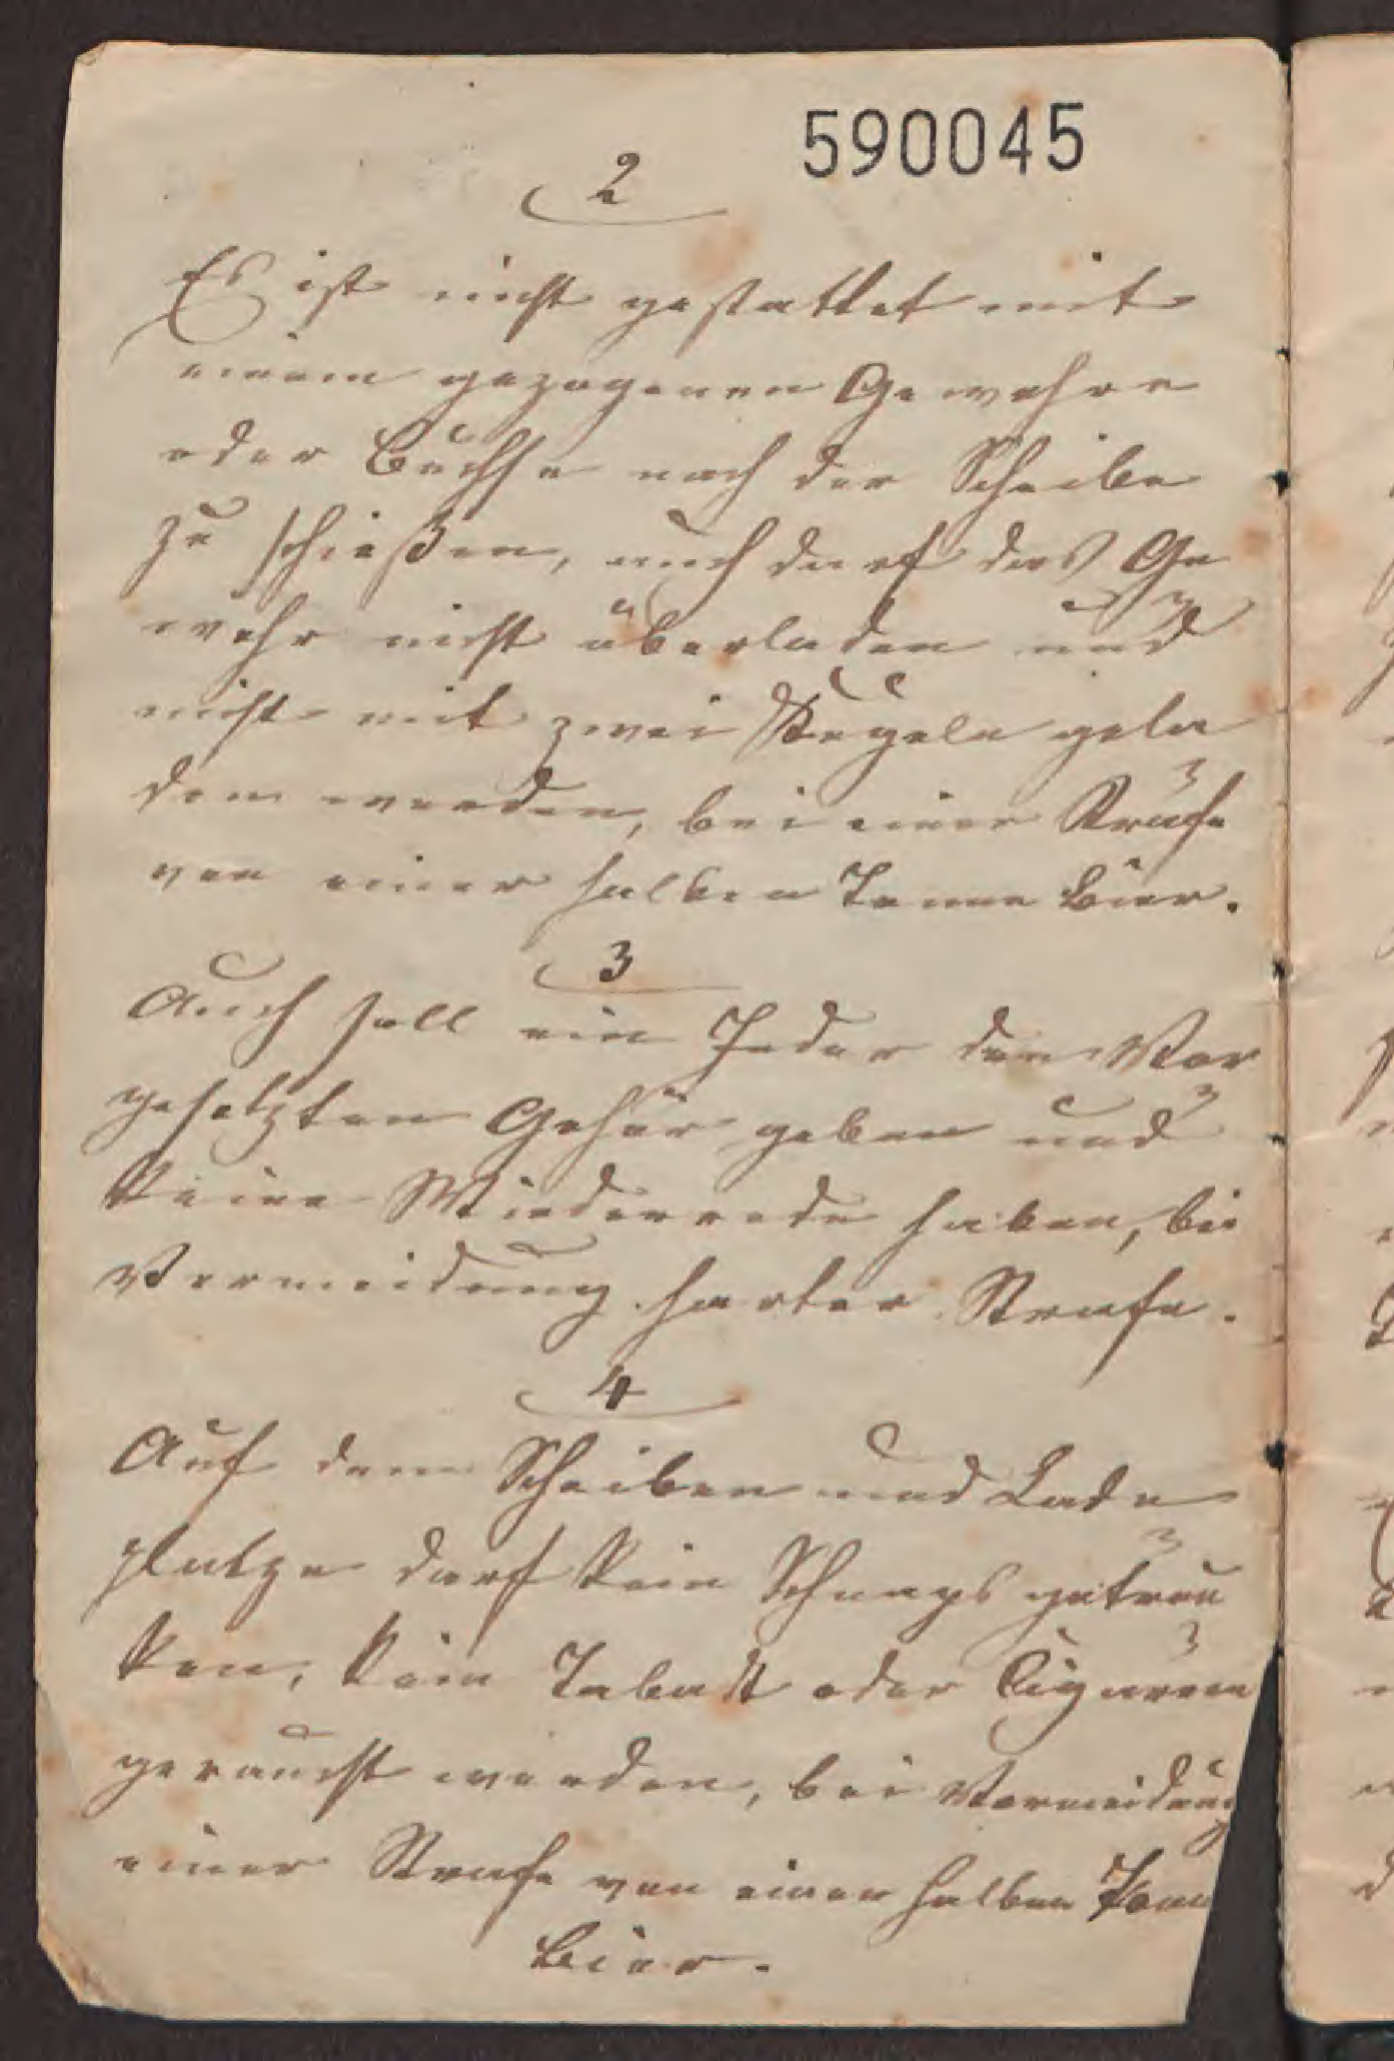 590045
2
Es ist nicht gestattet mit
einem gezogenen Gewehre
oder Büchse nach der Scheibe
zu schießen, auch darf das Ge
wehr nicht überladen und
nicht mit zwei Kugeln gela
den werden, bei einer Strafe
von einer halben Tonne Bier.
3
Auch soll ein Jeder den Vor
gesetzten Gehör geben und
keine Wiederrede haben, bei
Vermeidung harter Strafe.
4
Auf dem Scheiben und Lade
platze darf kein Schnaps getrun
ken, kein Taback oder Cigarren
geraucht werden, bei Vermeidung
einer Strafe von einer halben Tonne
Bier.